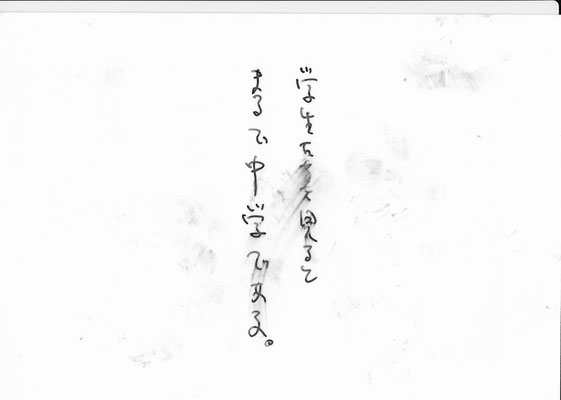 学生たちを見ると
まるで中学である。